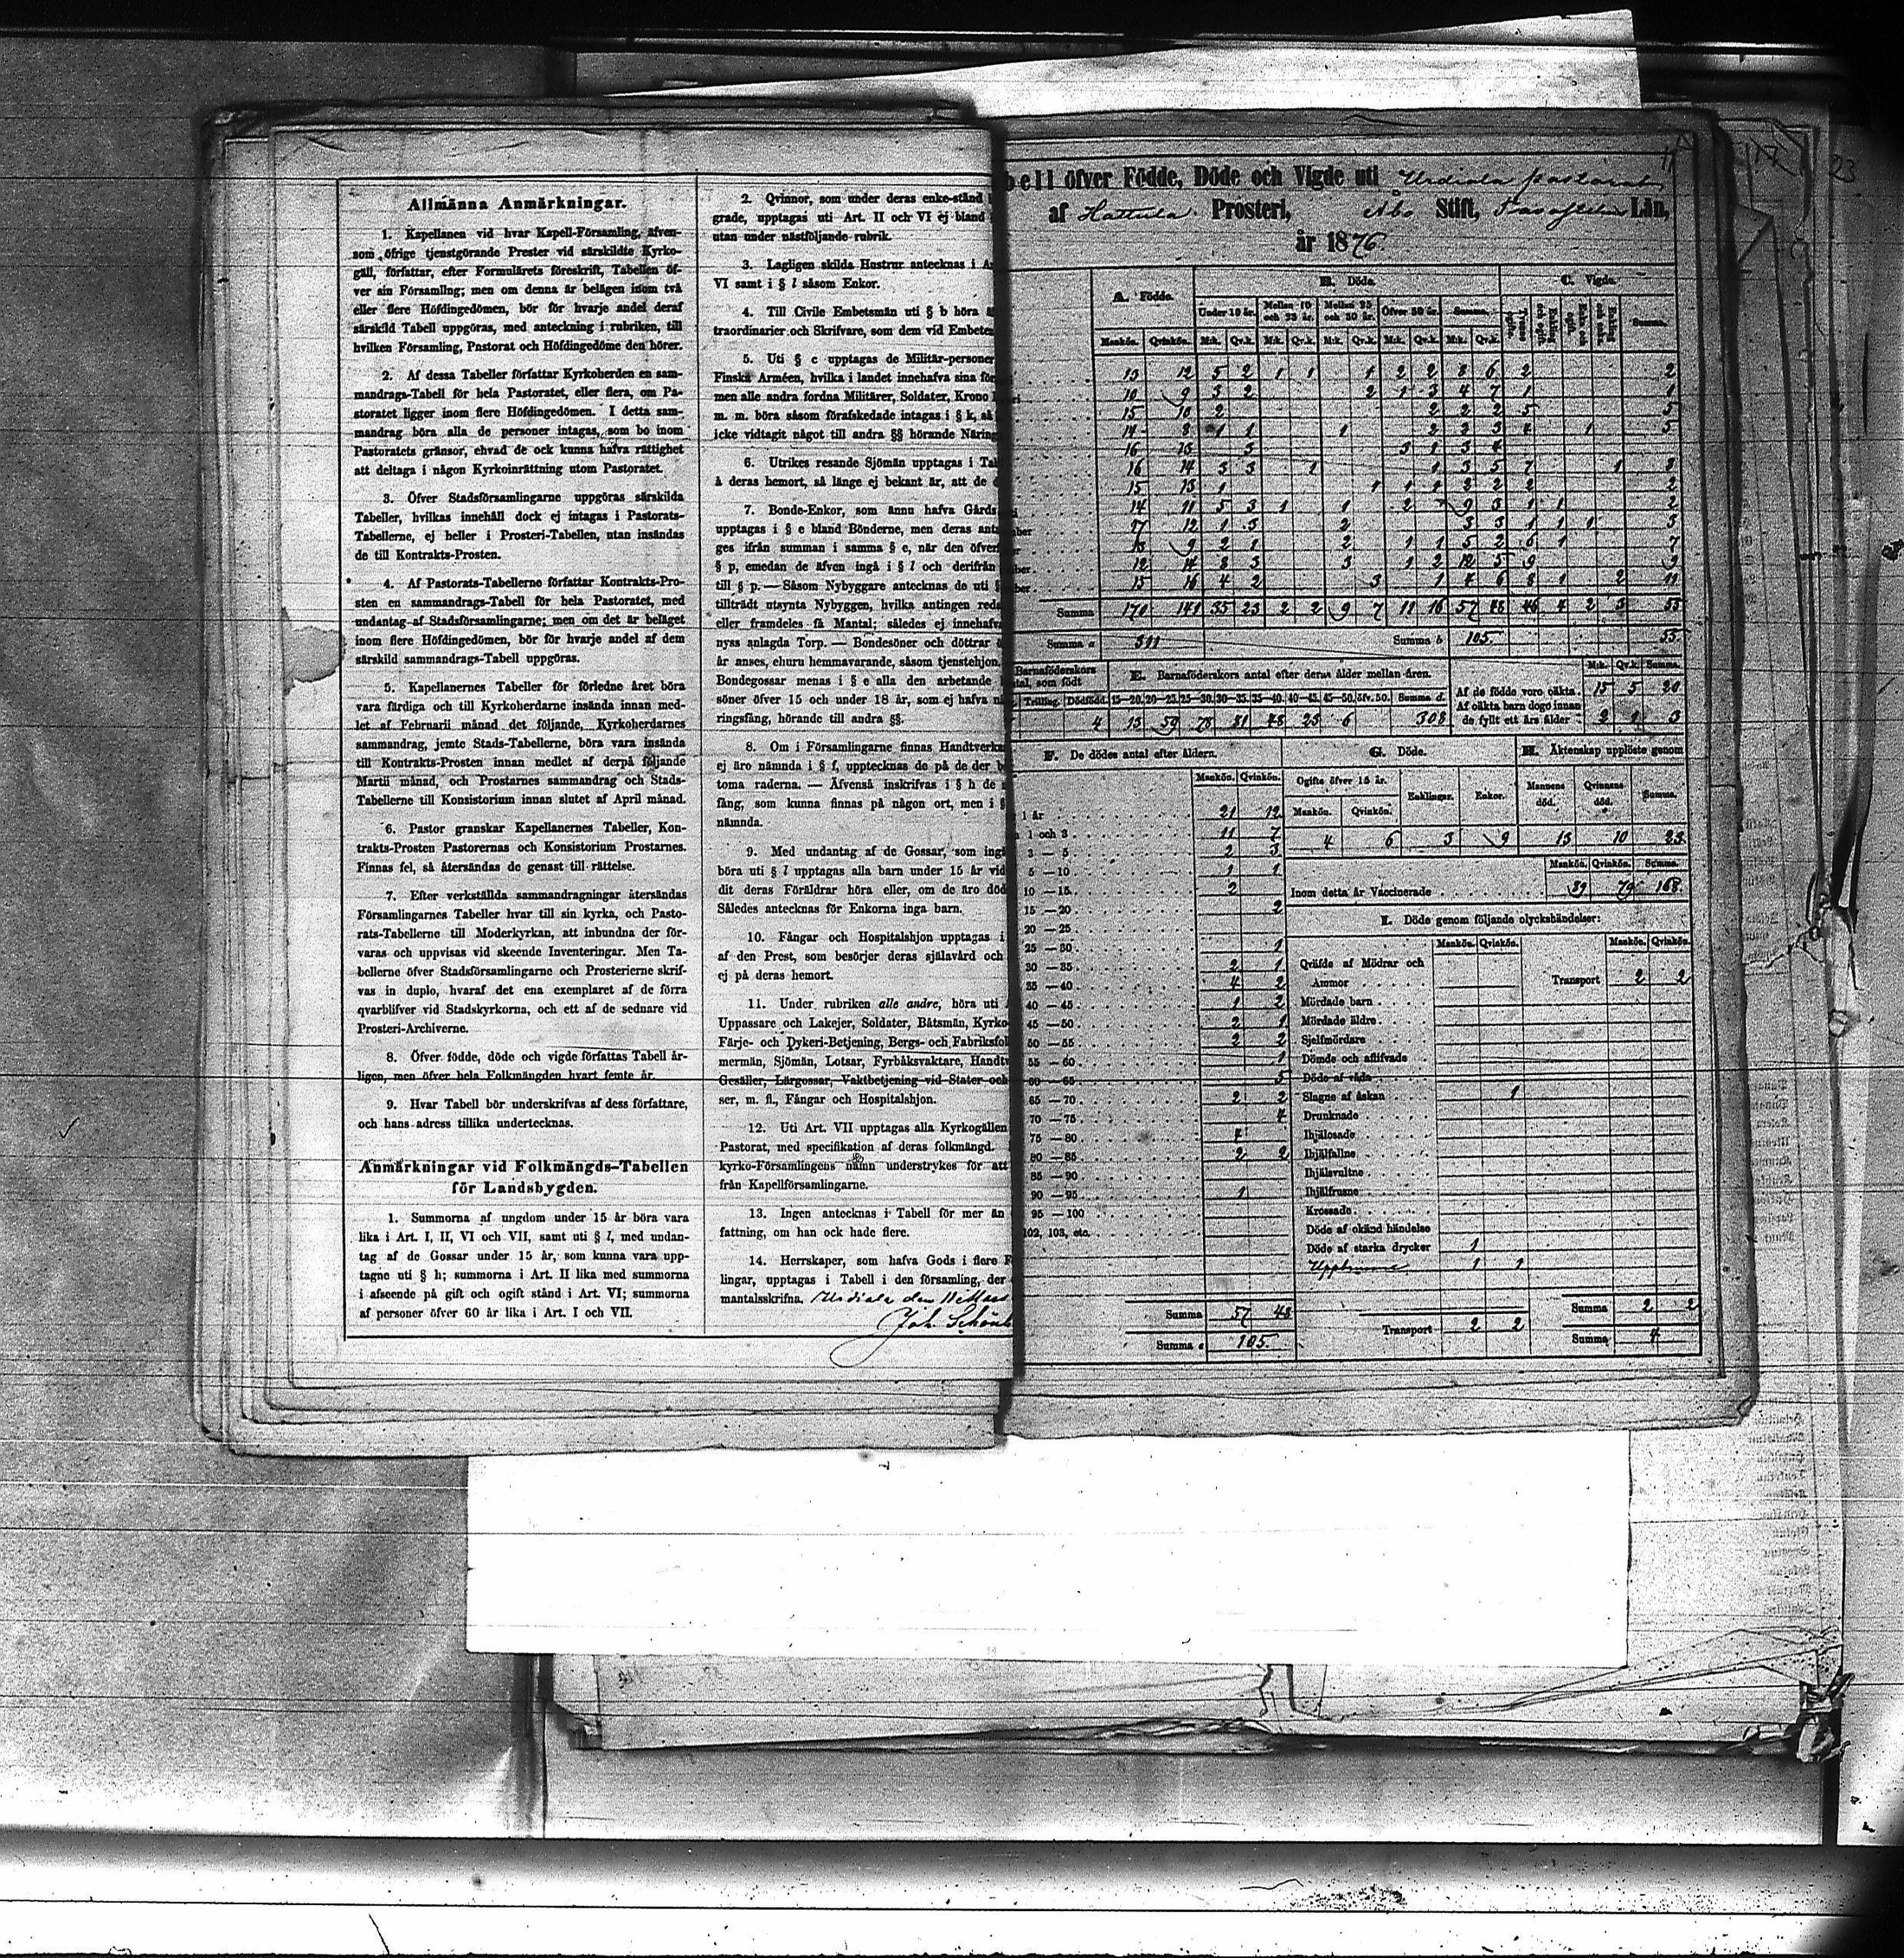 Allmänna Anmärkningar.
1. Kapellanen vid hvar Kapell-Församling, äfven-
som öfrige tjenstgörande Prester vid särskildte Kyrko-
gäll, författar, efter Formulärets föreskrift, Tabellen öf-
ver sin Församling; men om denna är belägen inom två
eller flere Höfdingedömen, bör för hvarje andel deraf
särskild Tabell uppgöras, med anteckning i rubriken, till
hvilken Församling, Pastorat och Höfdingedöme den hörer.
2. Af dessa Tabeller författar Kyrkoherden en sam-
mandrags-Tabell för hela Pastoratet, eller flera, om Pa-
storatet ligger inom flere Höfdingedömen. I detta sam-
mandrag böra alla de personer intagas, som bo inom
Pastoratets gränsor, ehvad de ock kunna hafva rättighet
att deltaga i någon Kyrkoinrättning utom Pastoratet.
3. Öfver Stadsförsamlingarne uppgöras särskilda
Tabeller, hvilkas innehåll dock ej intagas i Pastorats-
Tabellerne, ej heller i Prosteri-Tabellen, utan insändas
de till Kontrakts-Prosten.
4. Af Pastorats-Tabellerne författar Kontrakts-Pro-
sten en sammandrags-Tabell för hela Pastoratet, med
undantag af Stadsförsamlingarne; men om det är beläget
inom flere Höfdingedömen, bör för hvarje andel af dem
särskild sammandrags-Tabell uppgöras.
5. Kapellanernes Tabeller för förledne året böra
vara färdiga och till Kyrkoherdarne insända innan med-
let af Februarii månad det följande, Kyrkoherdarnes
sammandrag, jemte Stads-Tabellerne, böra vara insända
till Kontrakts-Prosten innan medlet af derpå följande
Martii månad, och Prostarnes sammandrag och Stads-
Tabellerne till Konsistorium innan slutet af April månad.
6. Pastor granskar Kapellanernes Tabeller, Kon-
trakts-Prosten Pastorernas och Konsistorium Prostarnes.
Finnas fel, så återsändas de genast till rättelse.
7. Efter verkställda sammandragningar återsändas
Församlingarnes Tabeller hvar till sin kyrka, och Pasto-
rats-Tabellerne till Moderkyrkan, att inbundna der för-
varas och uppvisas vid skeende Inventeringar. Men Ta-
bellerne öfver Stadsförsamlingarne och Prosterierne skrif-
vas in duplo, hvaraf det ena exemplaret af de förra
qvarblifver vid Stadskyrkorna, och ett af de sednare vid
Prosteri-Archiverne.
8. Öfver födde, döde och vigde författas Tabell år-
ligen, men öfver hela Folkmängden hvart femte år.
9. Hvar Tabell bör underskrifvas af dess författare,
och hans adress tillika undertecknas.
Anmärkningar vid Folkmängds-Tabellen
för Landsbygden.
1. Summorna af ungdom under 15 år böra vara
lika i Art. I, II, VI och VII, samt uti § l, med undan-
tag af de Gossar under 15 år, som kunna vara upp-
tagne uti § h; summorna i Art. II lika med summorna
i afseende på gift och ogift stånd i Art. VI; summorna
af personer öfver 60 år lika i Art. I och VII.
2. Qvinnor, som under deras enke-stånd
grade, upptagas uti Art. II och VI ej bland
utan under nästföljande rubrik.
3. Lagligen skilda Hustrur antecknas i
VI samt i § l såsom Enkor.
4. Till Civile Embetsmän uti § b höra
traordinarier och Skrifvare, som dem vid Embeten
5. Uti § c upptagas de Militär-personer
Finska Arméen, hvilka i landet innehafva sina
men alle andra fordna Militärer, Soldater, Krono
m. m. böra såsom förafskedade intagas i § k, så
icke vidtagit något till andra §§ hörande Näring
6. Utrikes resande Sjömän upptagas i
å deras hemort, så länge ej bekant är, att de
7. Bonde-Enkor, som ännu hafva Gårds
upptagas i § e bland Bönderne, men deras
ges ifrån summan i samma § e, när den
§ p, emedan de äfven ingå i § l och derifrån
till § p. — Såsom Nybyggare antecknas de uti §
tillträdt utsynta Nybyggen, hvilka antingen
eller framdeles få Mantal; således ej
nyss anlagda Torp. — Bondesöner och döttrar
år anses, ehuru hemmavarande, såsom tjenstehjon.
Bondegossar menas i § e alla den arbetande
söner öfver 15 och under 18 år, som ej hafva
ringsfång, hörande till andra §§.
8. Om i Församlingarne finnas
ej äro nämnda i § f, upptecknas de på de der
toma raderna. — Äfvenså inskrifvas i § h de
fång, som kunna finnas på någon ort, men i §
nämnda.
9. Med undantag af de Gossar, som
böra uti § l upptagas alla barn under 15 år vid
dit deras Föräldrar höra eller, om de äro
Således antecknas för Enkorna inga barn.
10. Fångar och Hospitalshjon upptagas i
af den Prest, som besörjer deras själavård och
ej på deras hemort.
11. Under rubriken alle andre, höra uti
Uppassare och Lakejer, Soldater, Båtsmän,
Färje- och Dykeri-Betjening, Bergs- och
mermän, Sjömän, Lotsar, Fyrbåksvaktare,
Gesäller, Lärgossar, Vaktbetjening vid Stater och
ser, m. fl., Fångar och Hospitalshjon.
12. Uti Art. VII upptagas alla Kyrkogällen
Pastorat, med specifikation af deras folkmängd.
kyrko-Församlingens namn understrykes för att
från Kapellförsamlingarne.
13. Ingen antecknas i Tabell för mer än
fattning, om han ock hade flere.
14. Herrskaper, som hafva Gods i flere
lingar, upptagas i Tabell i den församling, der
mantalsskrifna. Urdiala den
Joh.
bell öfver Födde, Döde och Vigde uti Urdiala pastorat
af Hattula Prosteri, Åbo Stift, Tavastehus Län,
år 1876.
A. Födde. B. Döde. C. Vigde.
Under 10 år. Mellan 10 och 25 år. Mellan 25 och 50 år. Öfver 50 år. Summa. Summa.
Mankön. Qvinkön. M:k. Qv.k. M:k. Qv.k. M:k. Qv.k. M:k. Qv.k. M:k. Qv.k.
13 12 5 2 1 1 1 2 2 8 6 2 2
10 9 3 2 2 1 3 4 7 1 1
15 10 2 2 2 2 5 5
16 14 3 3 1 1 3 5 7 1 8
Summa 170 141 35 23 2 2 9 7 11 16 57 48 46 4 2 3 55
Summa a 311 Summa b 105 55
Barnaföderskors
tal, som födt
E. Barnaföderskors antal efter deras ålder mellan åren.
M:k. Qv.k. Summa.
Trilling. Dödfödd. 15—20. 20—25. 25—30. 30—35. 35—40. 40—45. 45—50. öfv. 50. Summa d.
4 13 59 78 81 48 23 6 308
Af de födde voro oäkta. 15 5 20
Af oäkta barn dogo innan
de fyllt ett års ålder 2 1 3
F. De dödes antal efter åldern.
Mankön. Qvinkön.
1 år 21 12
1 och 3 11 7
3 — 5 2 3
5 — 10 1 1
10 — 15 2
15 — 20 2
20 — 25
25 — 30 1
30 — 35 2 1
35 — 40 4 2
40 — 45 1 2
45 — 50 2 1
50 — 55 2 2
55 — 60 1
60 — 65 5
65 — 70 2 2
70 — 75 4
75 — 80 4
80 — 85 2 2
85 — 90
90 — 95 1
95 — 100
102, 103, etc.
Summa 57 48
Summa e 105.
G. Döde.
Ogifte öfver 15 år. Enklingar. Enkor.
Mankön. Qvinkön.
4 6 3 9
H. Äktenskap upplöste genom
Mannens död. Qvinnans död. Summa.
13 10 23
Mankön. Qvinkön. Summa.
Inom detta år Vaccinerade 89 79 168.
I. Döde genom följande olyckshändelser:
Mankön. Qvinkön. Mankön. Qvinkön.
Qväfde af Mödrar och
Ammor
Transport 2 2
Mördade barn
Mördade äldre
Sjelfmördare
Dömde och aflifvade
Döde af våda
Slagne af åskan 1
Drunknade
Ihjälosade
Ihjälfallne
Ihjälsvultne
Ihjälfrusne
Krossade
Döde af okänd händelse
Döde af starka drycker 1
1 1
Transport 2 2
Summa 2 2
Summa 4